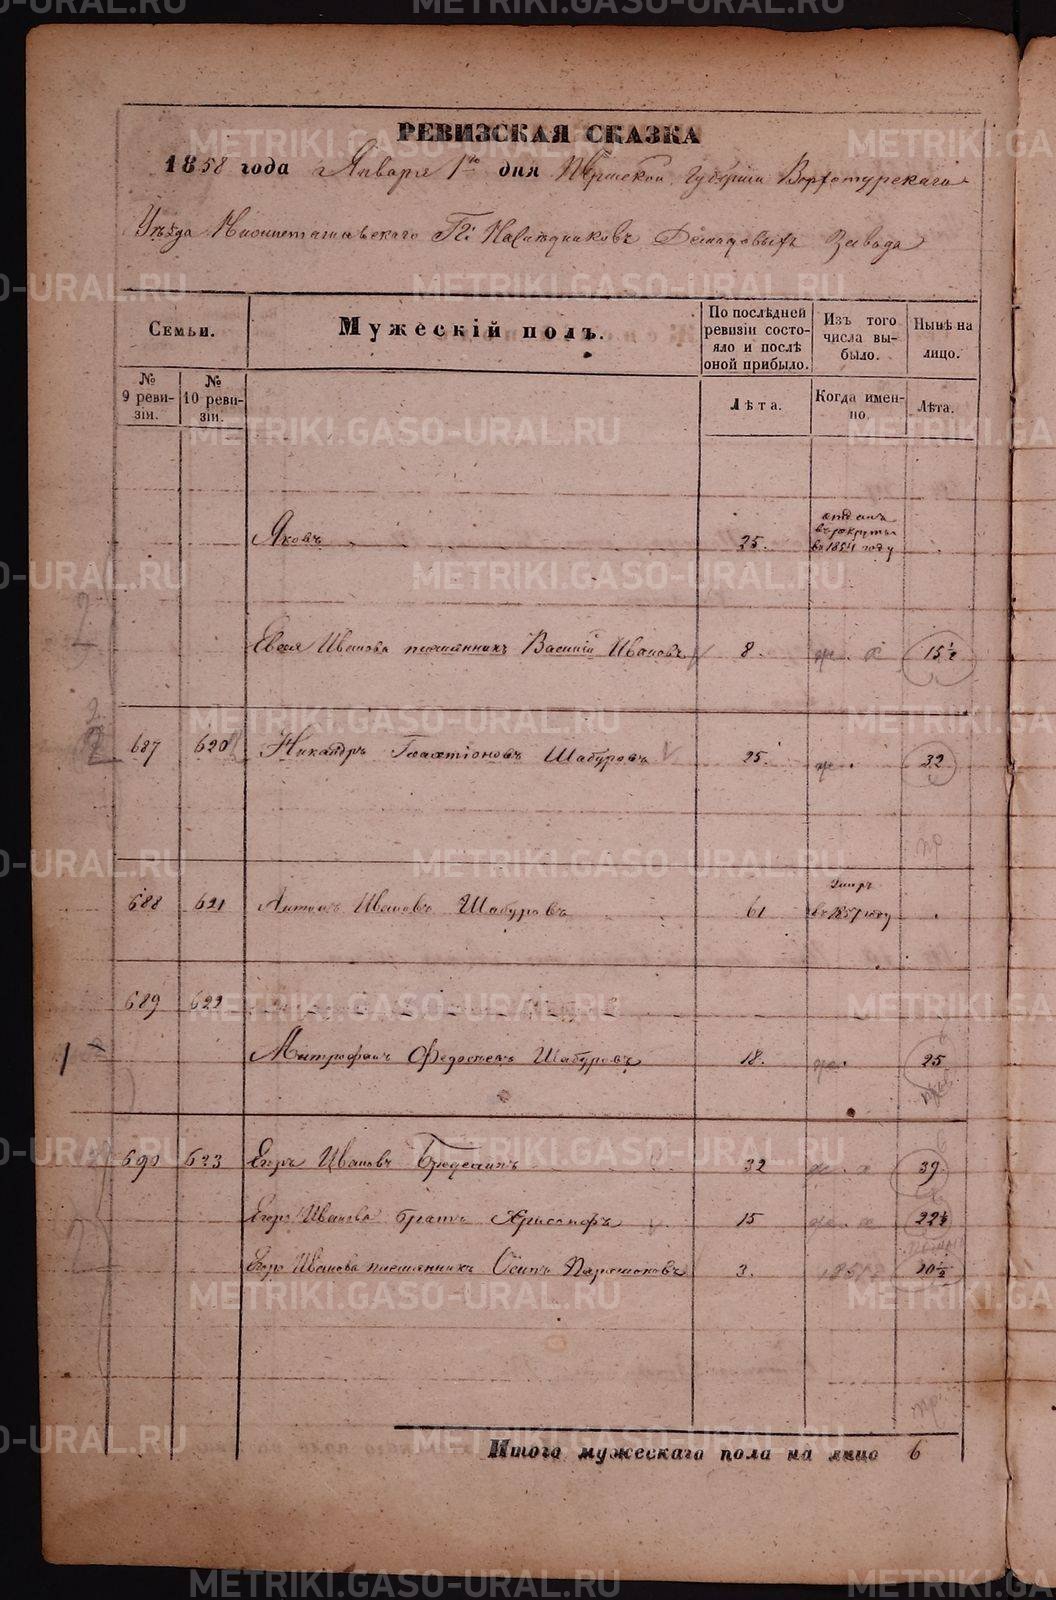 METRIKI.GASO-URAL.RU
РЕВИЗСКАЯ СКАЗКА
1858 года Января 1го дня Пермской губернии Верхотурскаго
Уѣзда Нижнетагильскаго Гг. Наслѣдниковъ Демидовыхъ Завода
Семьи.
Мужескій полъ.
По послѣдней ревизіи состояло и послѣ оной прибыло.
Изъ того числа выбыло.
Нынѣ на лицо.
№ 9 ревизіи.
№ 10 ревизіи.
Лѣта.
Когда именно.
Лѣта.
Яковъ 25. отданъ въ рекруты въ 1854 году
Ивана племянникъ Василій Ивановъ 8. 15½
687 620 Никандръ Галактіоновъ Шабуровъ 25. 32
688 621 Антонъ Ивановъ Шабуровъ 61 Умеръ въ 1857 году
689 622
Митрофанъ Федосѣевъ Шабуровъ 18. 25
690 623 Егоръ Ивановъ 32 39.
Егора Иванова братъ Хрисанфъ 15 22½
Егора Иванова племянникъ Осипъ Парамоновъ 3. 10½
Итого мужескаго пола на лицо 6